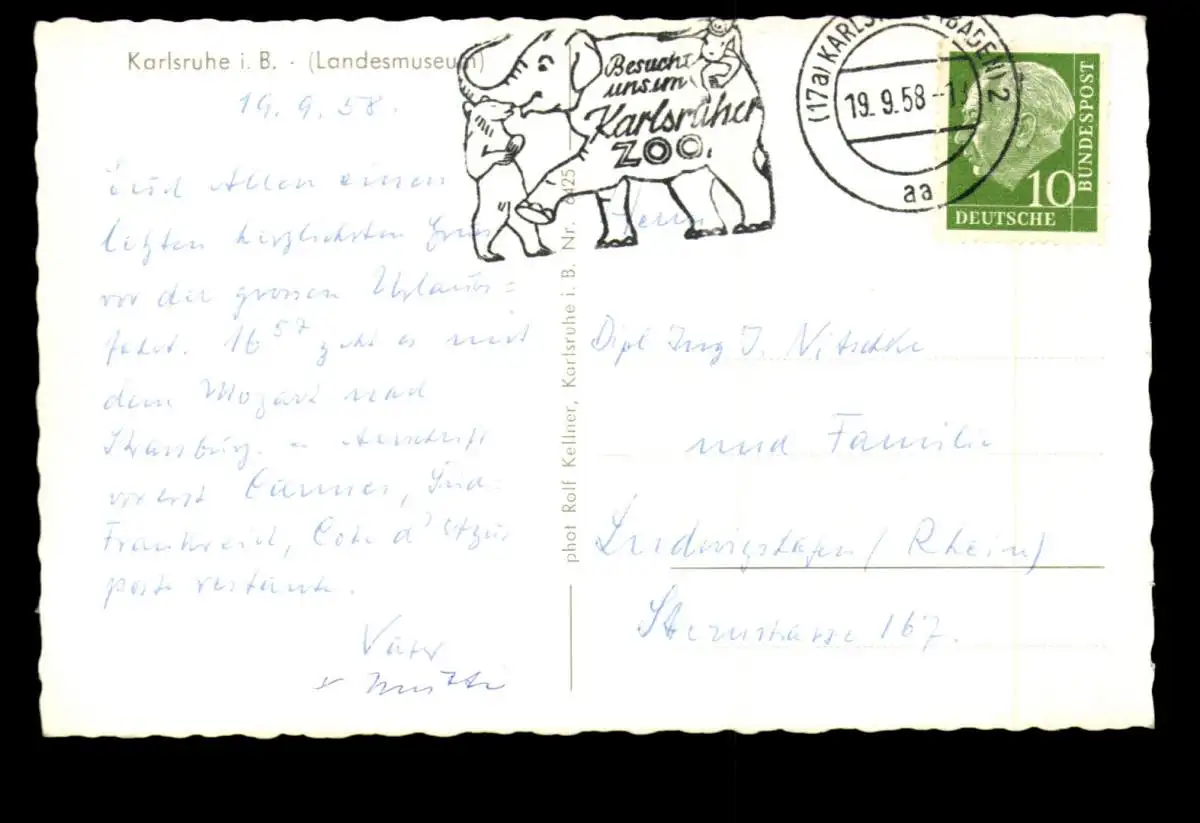 Karlsruhe i. B. · (Landesmuseum)
19. 9. 58.
Euch Allen einen
letzten herzlichsten Gruss
vor der grossen Urlaubs=
fahrt. 16⁵⁷ geht es mit
dem Mozart nach
Strassburg. – Anschrift
vorerst Cannes, Süd-
Frankreich, Cote d'Azur
poste restante.
Vater
+ Mutti
phot Rolf Kellner, Karlsruhe i. B. Nr. 6425
Besucht
uns im
Karlsruher
ZOO.
(17a) KARLSRUHE (BADEN) 2
19. 9. 58
aa
BUNDESPOST
10
DEUTSCHE
Herrn
Dipl Ing J. Nitschke
und Familie
Ludwigshafen (Rhein)
Sternstrasse 167.